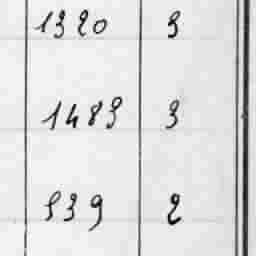 1320 3
1483 3
539 2